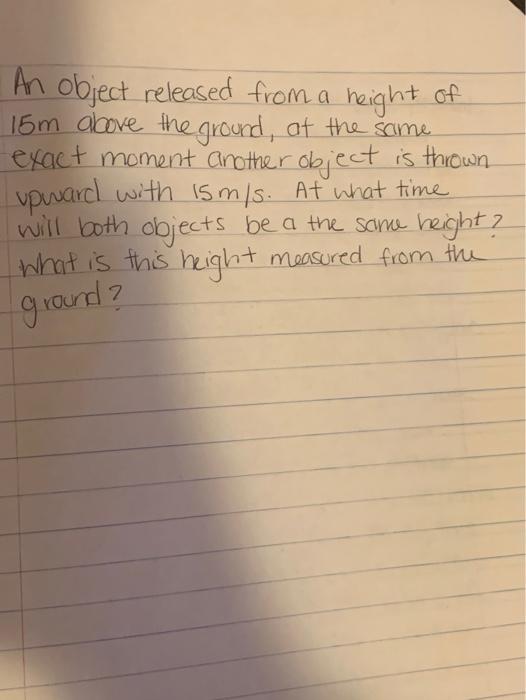 An object released from a height of
15m above the ground, at the same
exact moment another object is thrown
upward with 15m/s. At what time
will both objects be a the same height?
what is this height measured from the
ground?